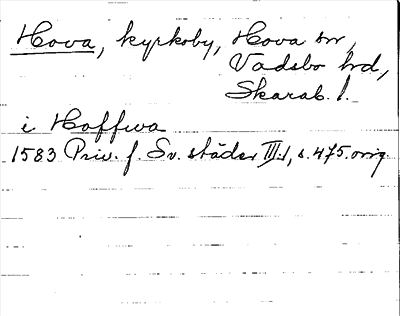 Hova, kyrkoby, Hova sn,
Vadsbo hd,
Skarab. l.
i Hoffwa
1583 Priv. f. Sv. städer III:1, s. 475. orig.